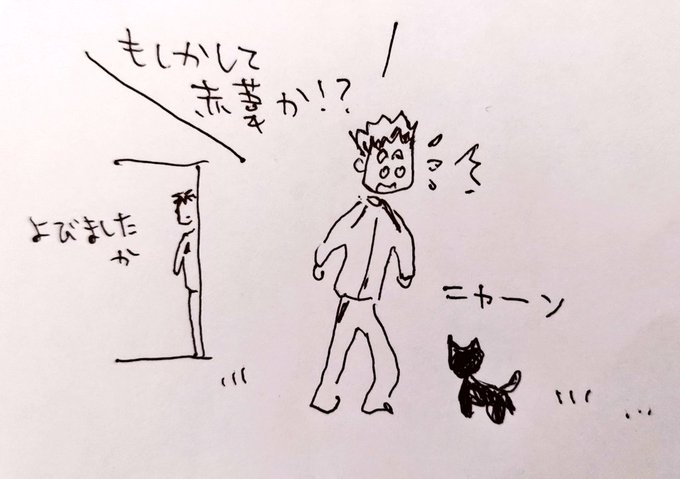 もしかして
赤葦か!?
よびました
か
ニャーン